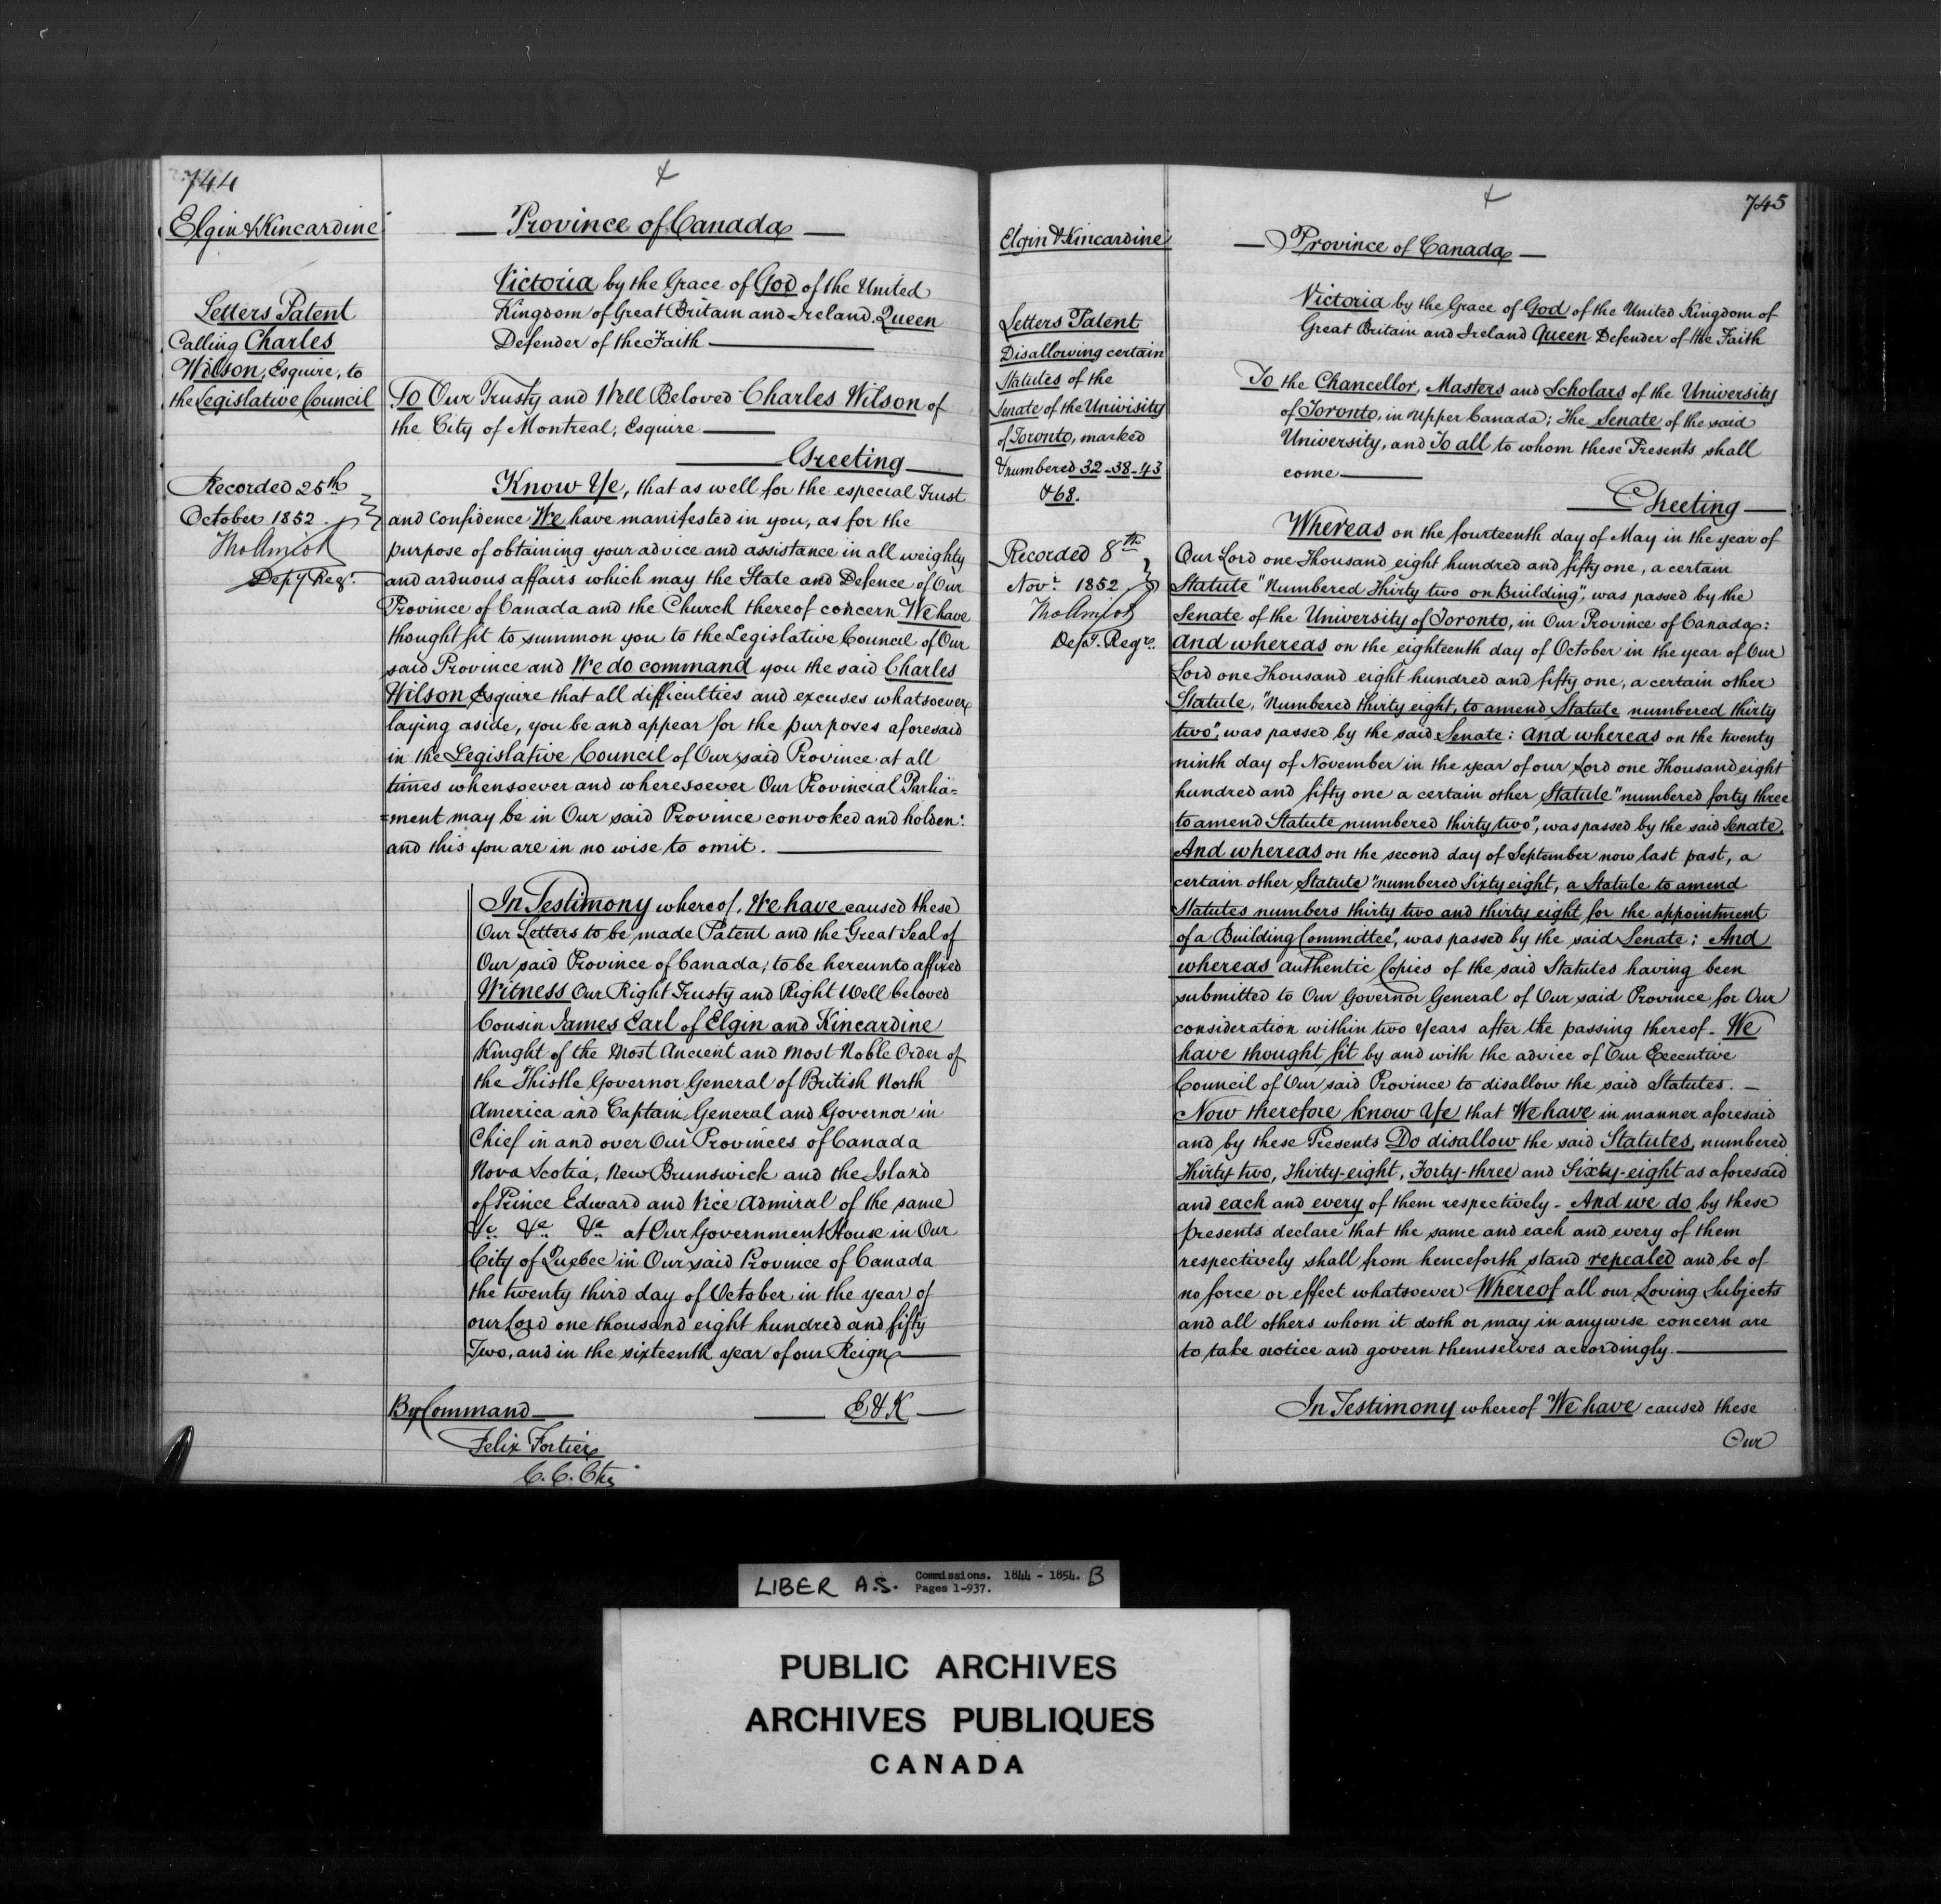 744
Elgin & Kincardine
Letters Patent
Calling Charles
Wilson, Esquire, to
the Legislative Council
Recorded 25th
October 1852.
Tho Amiot
Depy Regr.
Province of Canada
Victoria by the Grace of God of the United
Kingdom of Great Britain and Ireland, Queen
Defender of the Faith
To Our Trusty and Well Beloved Charles Wilson of
the City of Montreal, Esquire
Greeting
Know Ye, that as well for the especial Trust
and confidence We have manifested in you, as for the
purpose of obtaining your advice and assistance in all weighty
and arduous affairs which may the State and Defence of Our
Province of Canada and the Church thereof concern We have
thought fit to summon you to the Legislative Council of Our
said Province and We do command you the said Charles
Wilson Esquire that all difficulties and excuses whatsoever
laying aside, you be and appear for the purposes aforesaid
in the Legislative Council of Our said Province at all
times whensoever and wheresoever Our Provincial Parlia=
=ment may be in Our said Province convoked and holden:
and this you are in no wise to omit.
In Testimony whereof, We have caused these
Our Letters to be made Patent and the Great Seal of
Our said Province of Canada, to be hereunto affixed
Witness Our Right Trusty and Right Well beloved
Cousin James Earl of Elgin and Kincardine
Knight of the Most Ancient and Most Noble Order of
the Thistle Governor General of British North
America and Captain General and Governor in
Chief in and over Our Provinces of Canada
Nova Scotia, New Brunswick and the Island
of Prince Edward and Vice Admiral of the same
&c &c &c at Our Government House in Our
City of Quebec in Our said Province of Canada
the twenty third day of October in the year of
our Lord one thousand eight hundred and fifty
Two, and in the sixteenth year of our Reign
By Command E & K
Felix Fortier
C.C. Chy
745
Elgin & Kincardine
Letters Patent
Disallowing certain
Statutes of the
Senate of the Univisity
of Toronto, marked
& numbered 32-38-43
& 68.
Recorded 8th
Novr. 1852
Tho Amiot
Depy. Regr.
Province of Canada
Victoria by the Grace of God of the United Kingdom of
Great Britain and Ireland Queen Defender of the Faith
To the Chancellor, Masters and Scholars of the University
of Toronto, in Upper Canada; The Senate of the said
University, and To all to whom these Presents shall
come
Greeting
Whereas on the fourteenth day of May in the year of
Our Lord one Thousand eight hundred and fifty one, a certain
Statute "Numbered Thirty two on Building", was passed by the
Senate of the University of Toronto, in Our Province of Canada:
And whereas on the eighteenth day of October in the year of Our
Lord one Thousand eight hundred and fifty one, a certain other
Statute, "Numbered thirty eight, to amend Statute numbered thirty
two", was passed by the said Senate: And whereas on the twenty
ninth day of November in the year of our Lord one Thousand eight
hundred and fifty one a certain other Statute "numbered forty three
to amend Statute numbered thirty two", was passed by the said Senate.
And whereas on the second day of September now last past, a
certain other Statute "numbered Sixty eight, a Statute to amend
Statutes numbers thirty two and thirty eight for the appointment
of a Building Committee", was passed by the said Senate; And
whereas authentic Copies of the said Statutes having been
submitted to Our Governor General of Our said Province for Our
consideration within two years after the passing thereof - We
have thought fit by and with the advice of Our Executive
Council of Our said Province to disallow the said Statutes. -
Now therefore know Ye, that We have in manner aforesaid
and by these Presents Do disallow the said Statutes, numbered
Thirty two, Thirty-eight, Forty-three and Sixty-eight as aforesaid
and each and every of them respectively - And we do by these
presents declare that the same and each and every of them
respectively shall from henceforth stand repealed and be of
no force or effect whatsoever Whereof all our Loving Subjects
and all others whom it doth or may in anywise concern are
to take notice and govern themselves accordingly.
In Testimony whereof We have caused these
Our
LIBER A.S. Commissions. 1844 - 1854. B
Pages 1-937.
PUBLIC ARCHIVES
ARCHIVES PUBLIQUES
CANADA